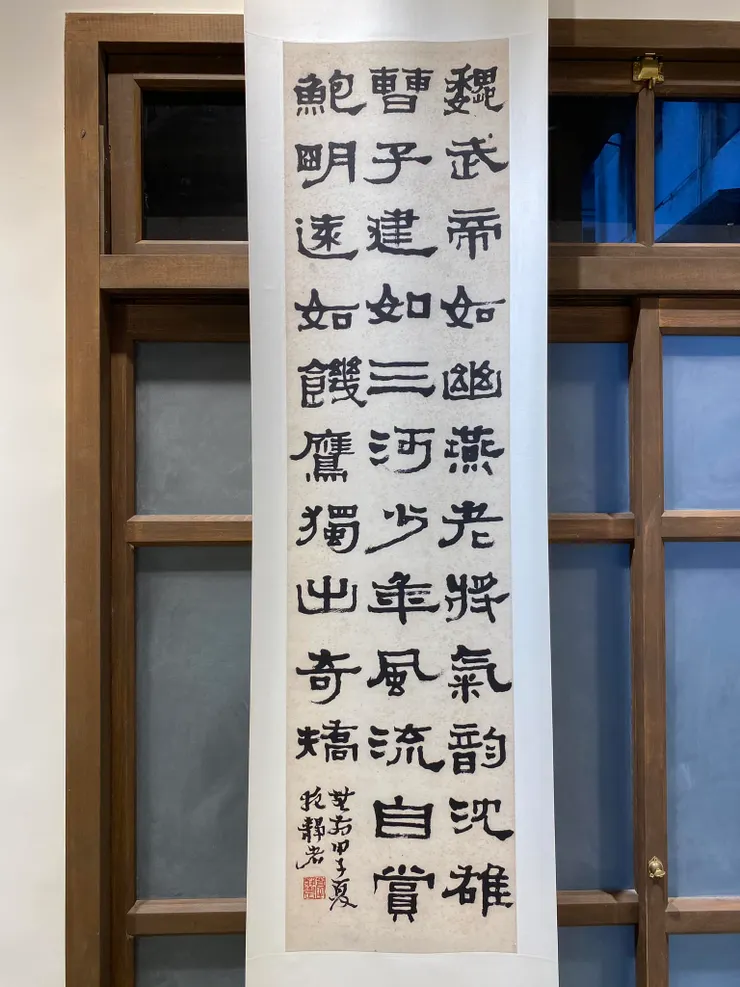 魏武帝如幽燕老將氣韵沈雄
曹子建如三河少年風流自賞
鮑明遠如饑鷹獨出奇矯
甲子夏